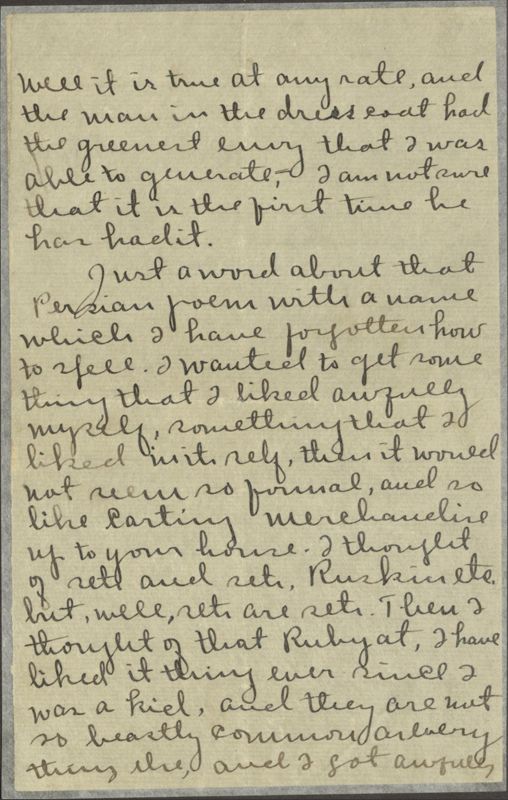 Well it is true at any rate, and
the man in the dress coat had
the greenest envy that I was
able to generate,- I am not sure
that it is the first time he
has had it.
Just a word about that
Persian poem with a name
which I have forgotten how
to spell. I wanted to get some
thing that I liked awfully
myself, something that I
liked in its self, then it would
not seem so formal, and so
like carting merchandise
up to your house. I thought
of sets and sets, Ruskin etc.
but, well, sets are sets. Then I
thought of that Rubyat, I have
liked it thing ever since I
was a kid, and they are not
so beastly common as every
thing else, and I got awfully